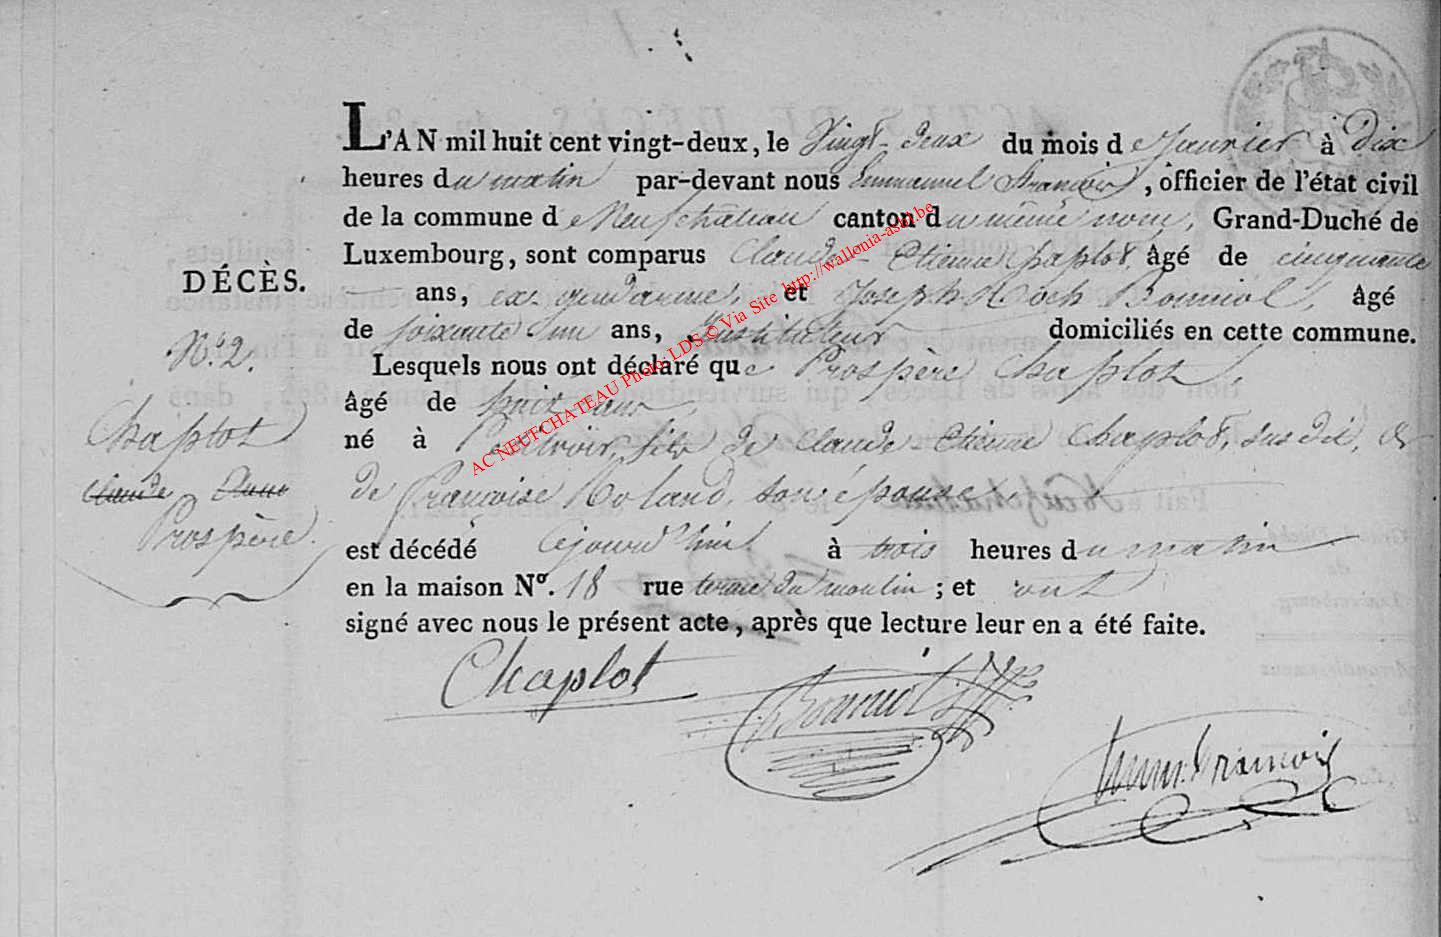 L'AN mil huit cent vingt-deux, le Vingt-deux du mois de Janvier à Dix
heures du matin par-devant nous Emmanuel François, officier de l'état civil
de la commune de Neufchâteau canton du même nom, Grand-Duché de
Luxembourg, sont comparus Claude-Etienne Chaplot, âgé de cinquante
ans, ex-gendarme, et Joseph Roch Bonniol, âgé
de soixante un ans, Instituteur domiciliés en cette commune.
Lesquels nous ont déclaré que Prospère Chaplot,
âgé de huit ans,
né à fils de Claude-Etienne Chaplot, susdit, &
de Françoise Roland, son épouse
est décédé cejourd'hui à trois heures du matin
en la maison Nº. 18 rue terme du moulin ; et ont
signé avec nous le présent acte, après que lecture leur en a été faite.
DÉCÈS.
Nº 2.
Chaplot
Claude
Prospère
Chaplot
Bonniol
Emm. François
AC NEUFCHATEAU Photo: LDS © Via Site http://wallonia-asbl.be